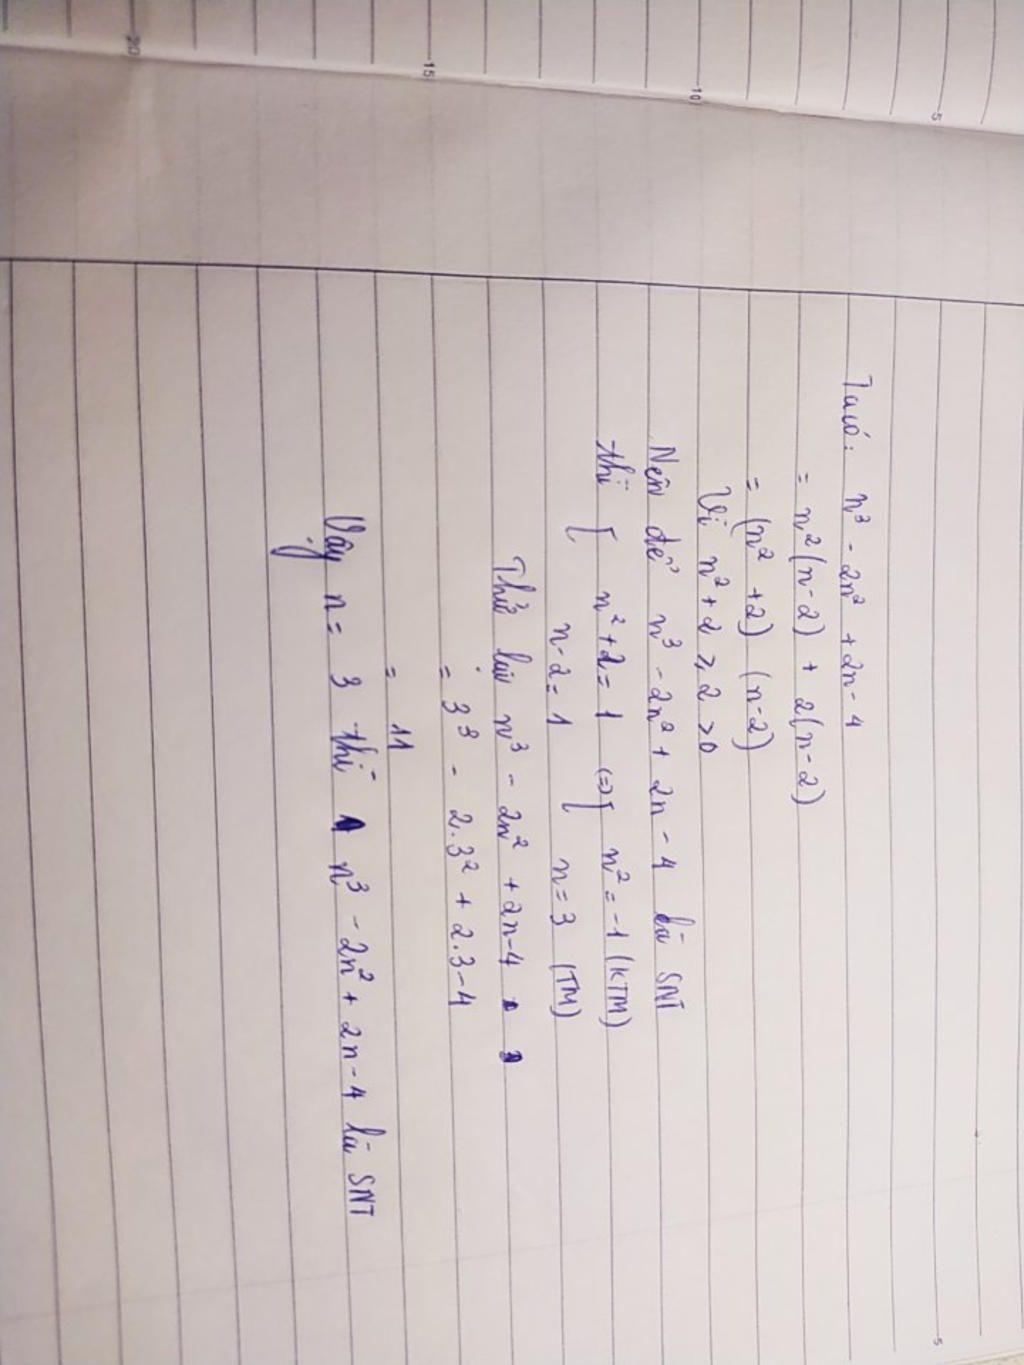 Ta có: n³ - 2n² + 2n - 4
= n²(n-2) + 2(n-2)
= (n² + 2) (n-2)
Vì n² + 2 ⩾ 2 > 0
Nên để n³ - 2n² + 2n - 4 là SNT
thì [ n² + 2 = 1 (=>[ n² = -1 (KTM)
n - 2 = 1 [ n = 3 (TM)
Thử lại n³ - 2n² + 2n - 4
= 3³ - 2.3² + 2.3 - 4
= 11
Vậy n = 3 thì n³ - 2n² + 2n - 4 là SNT
5
10
15
20
5